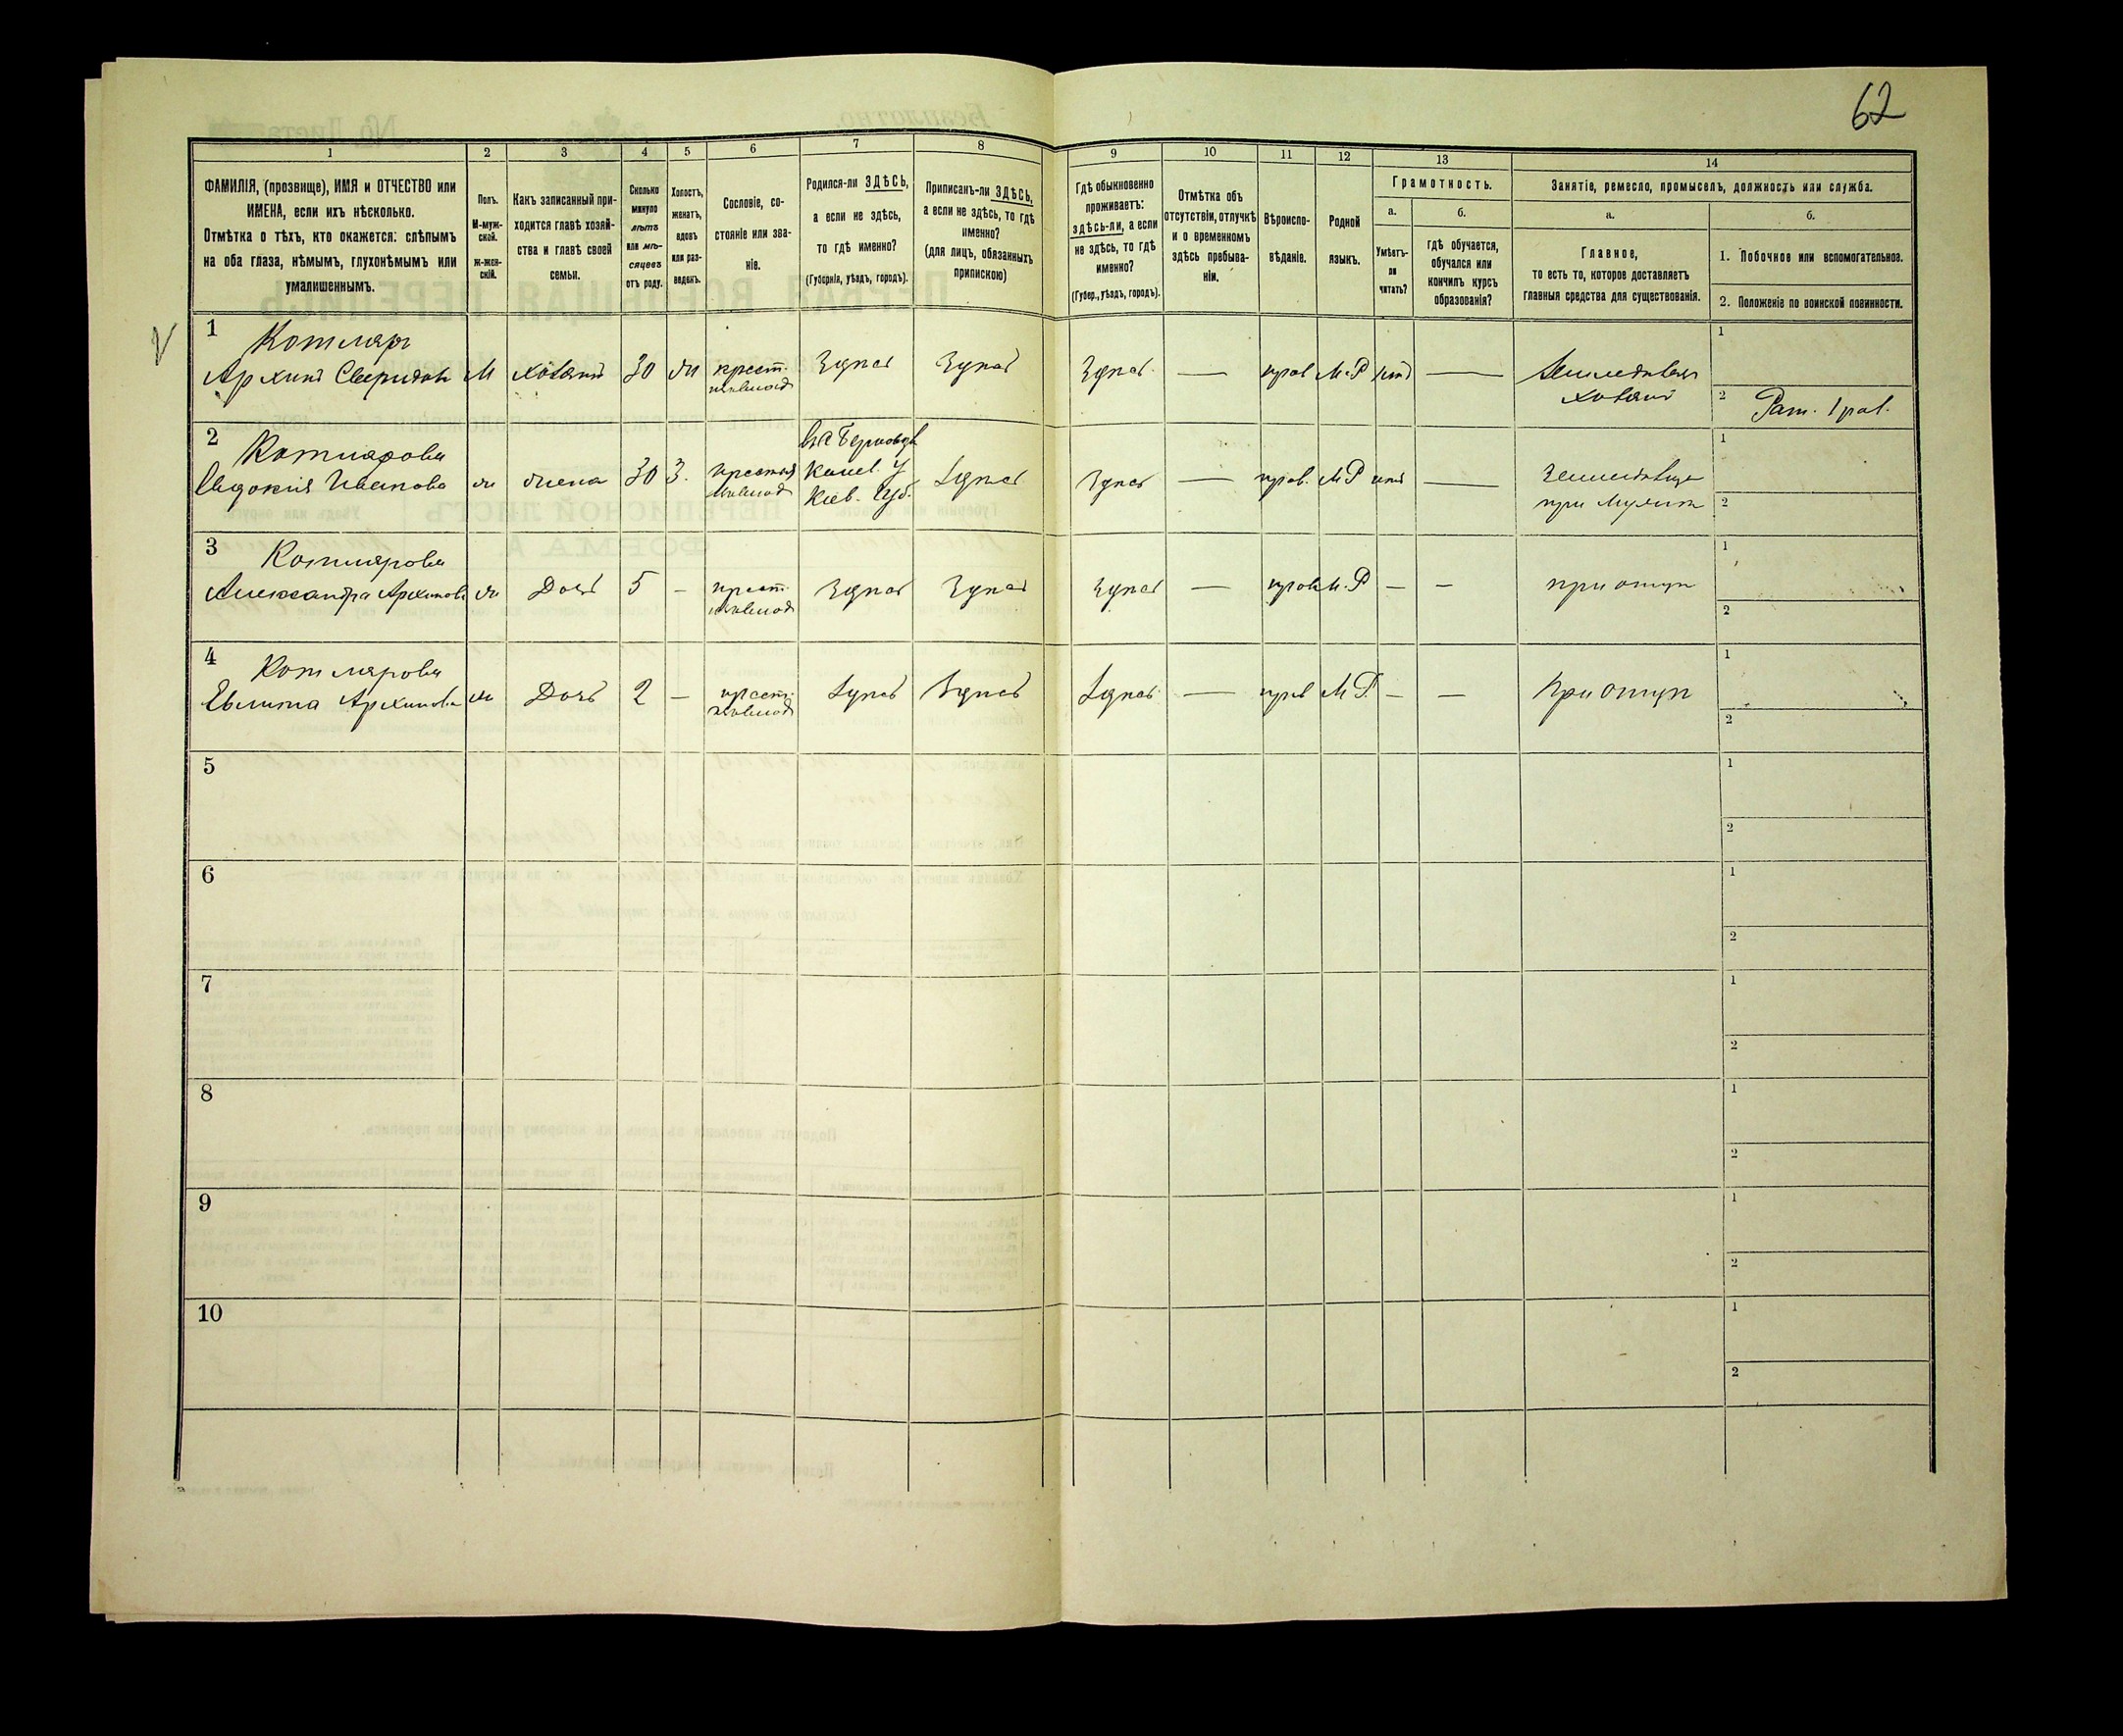 62
1
2
3
4
5
6
7
8
9
10
11
12
13
14
ФАМИЛІЯ, (прозвище), ИМЯ и ОТЧЕСТВО или
ИМЕНА, если ихъ нѣсколько.
Отмѣтка о тѣхъ, кто окажется: слѣпымъ
на оба глаза, нѣмымъ, глухонѣмымъ или
умалишеннымъ.
Полъ.
М-муж-
ской.
ж-жен-
скій.
Какъ записанный при-
ходится главѣ хозяй-
ства и главѣ своей
семьи.
Сколько
минуло
лѣтъ
или мѣ-
сяцевъ
отъ роду.
Холостъ,
женатъ,
вдовъ
или раз-
веденъ.
Сословіе, со-
стояніе или зва-
ніе.
Родился-ли ЗДѢСЬ,
а если не здѣсь,
то гдѣ именно?
(Губернія, уѣздъ, городъ).
Приписанъ-ли ЗДѢСЬ,
а если не здѣсь, то гдѣ
именно?
(для лицъ, обязанныхъ
припискою)
Гдѣ обыкновенно
проживаетъ:
здѣсь-ли, а если
не здѣсь, то гдѣ
именно?
(Губер., уѣздъ, городъ).
Отмѣтка объ
отсутствіи, отлучкѣ
и о временномъ
здѣсь пребыва-
ніи.
Вѣроиспо-
вѣданіе.
Родной
языкъ.
Грамотность.
а.
Умѣетъ-
ли
читать?
б.
гдѣ обучается,
обучался или
кончилъ курсъ
образованія?
Занятіе, ремесло, промыселъ, должность или служба.
а.
Главное,
то есть то, которое доставляетъ
главныя средства для существованія.
б.
1. Побочное или вспомогательное.
2. Положеніе по воинской повинности.
1
Котляръ
Архипъ Свиридовъ
М
хозяинъ
30
жи
крест.
Здѣсь
Здѣсь
Здѣсь
—
прав
М.Р
—
хозяинъ
1
2
Рат. 1 раз.
2
Котлярова
Евдокія Иванова
ж
жена
30
З.
Канев. у
Кіев. Губ.
Здѣсь
Здѣсь
—
прав.
М Р
—
при мужѣ
1
2
3
Котлярова
Александра Архипова
ж
Дочь
5
–
крест.
Здѣсь
Здѣсь
Здѣсь
—
прав
М.Р
–
–
при отцѣ
1
2
4
Котлярова
Архипова
ж
Дочь
2
–
крест.
Здѣсь
Здѣсь
Здѣсь
—
прав
М Р.
–
–
При отцѣ
1
2
5
1
2
6
1
2
7
1
2
8
1
2
9
1
2
10
1
2